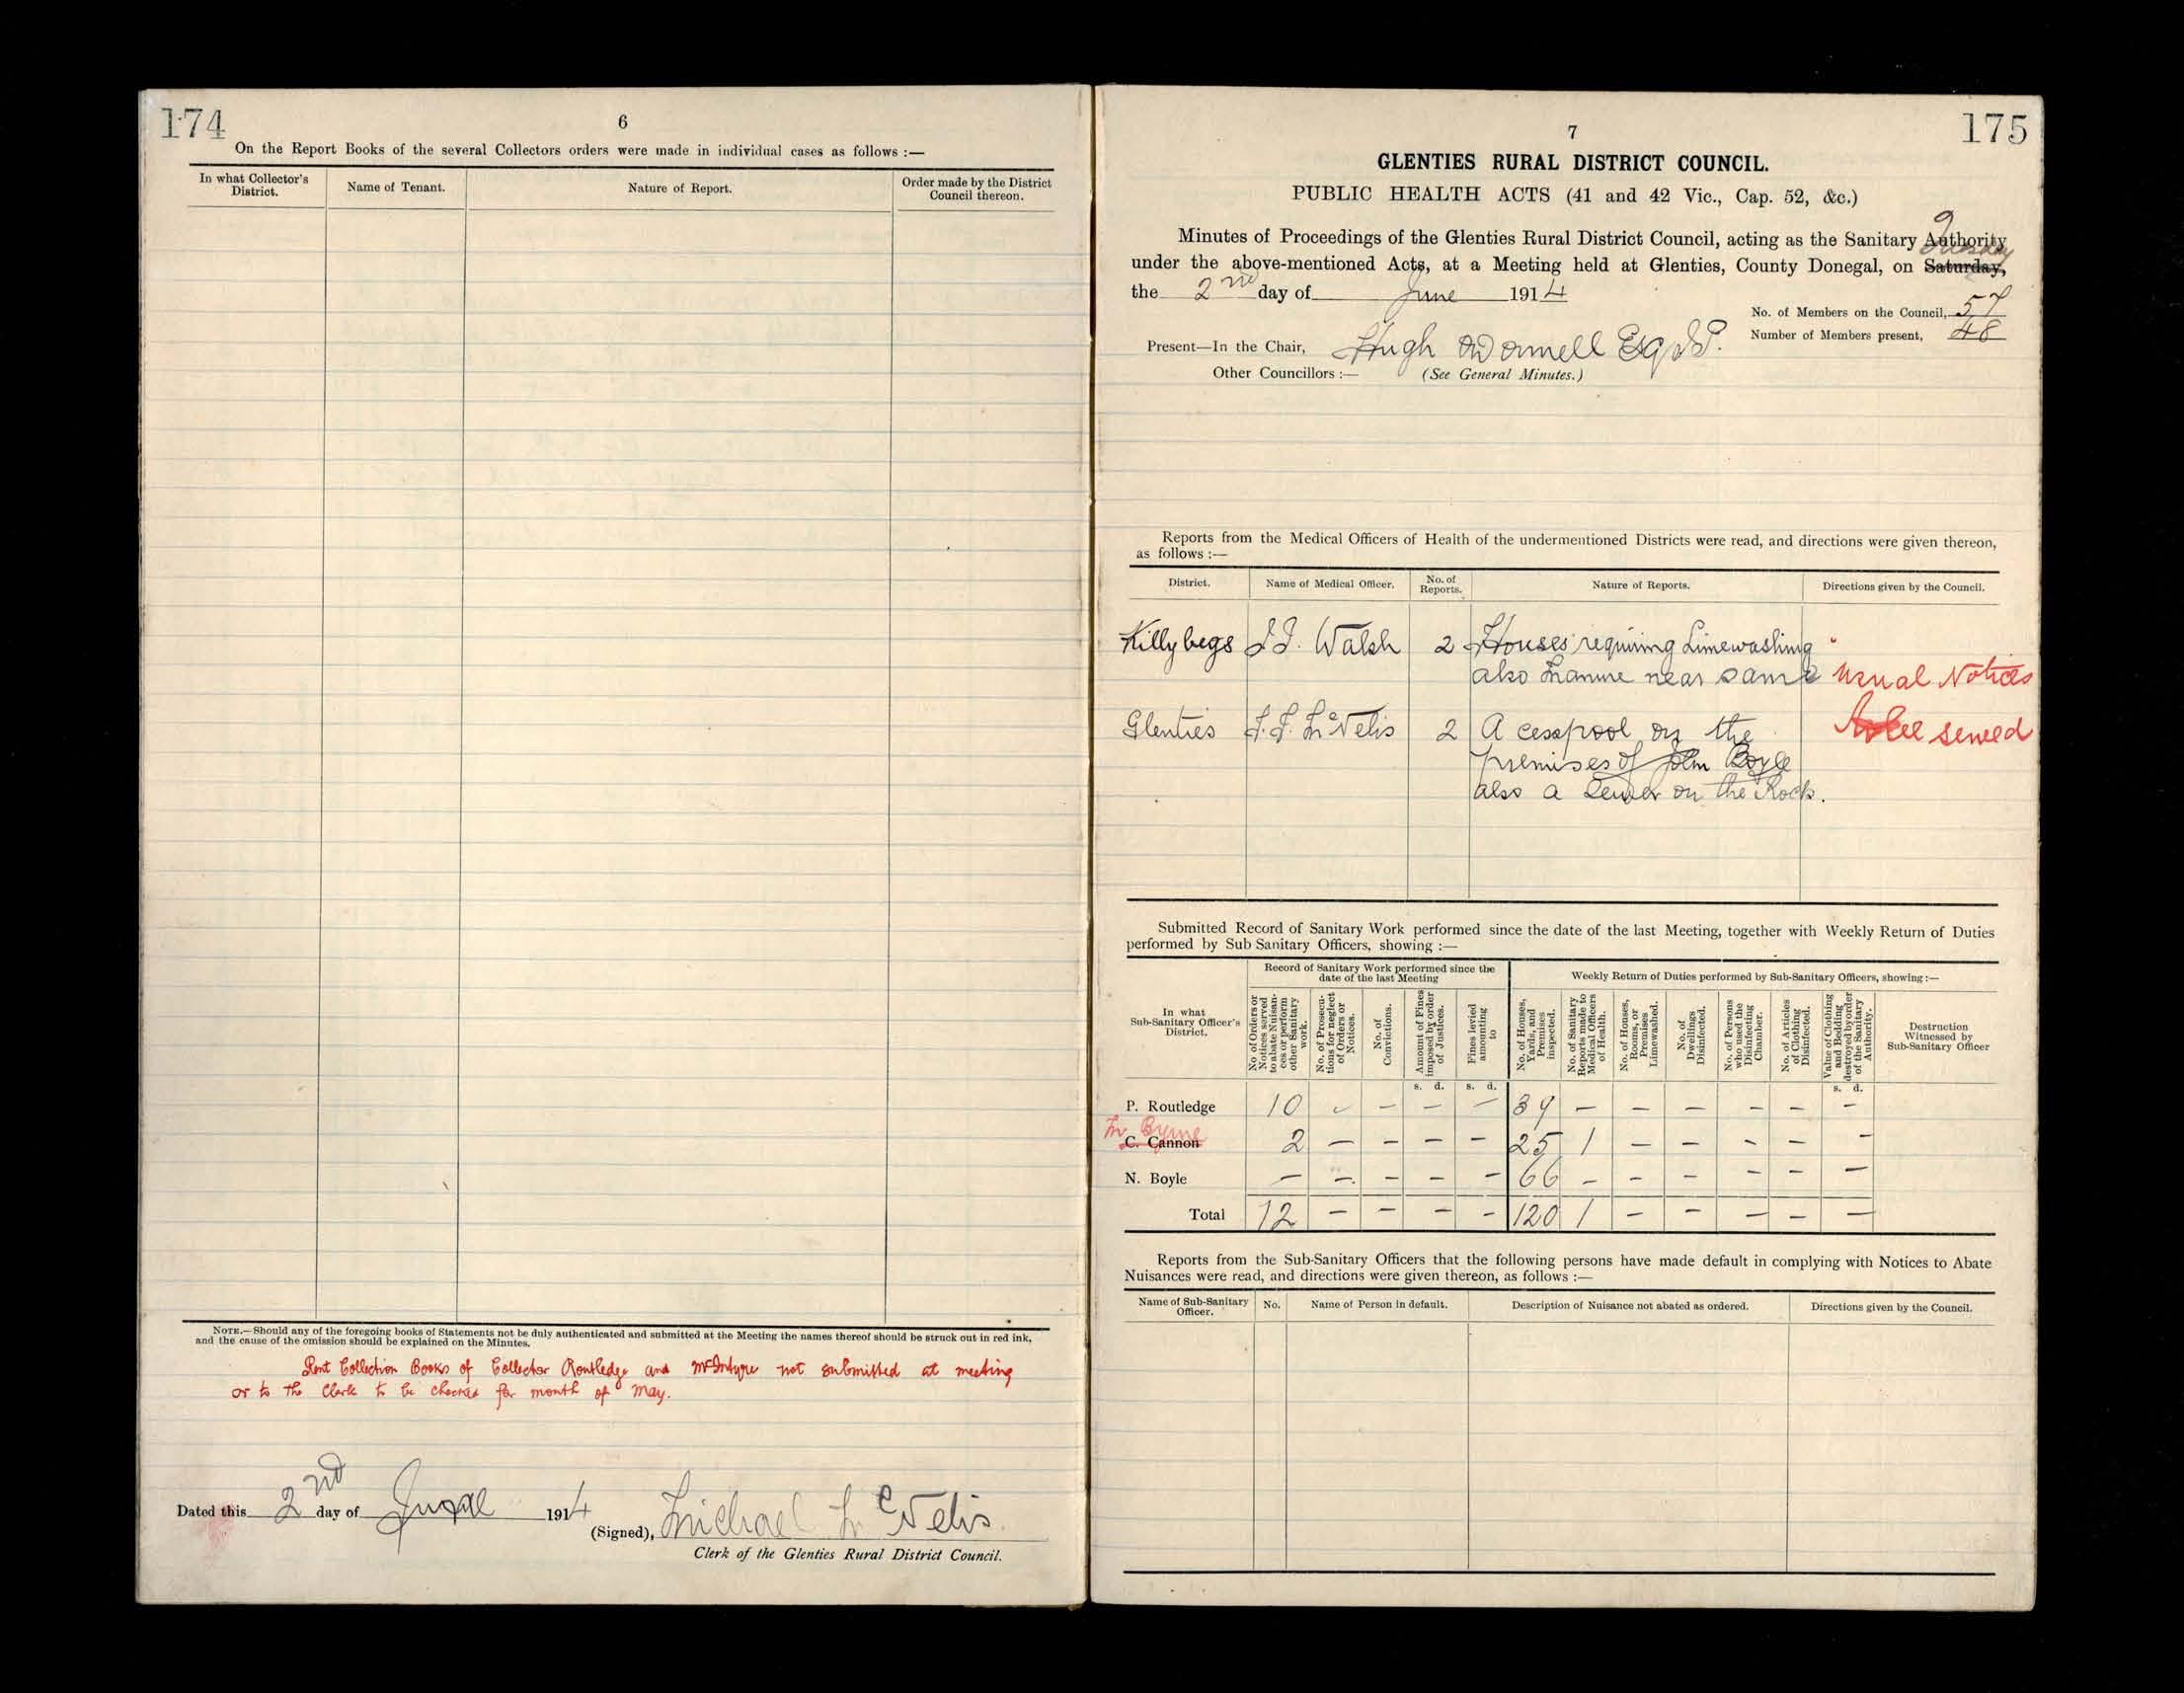 174
6
On the Report Books of the several Collectors orders were made in individual cases as follows :—
In what Collector's District.
Name of Tenant.
Nature of Report.
Order made by the District Council thereon.
NOTE.—Should any of the foregoing books of Statements not be duly authenticated and submitted at the Meeting the names thereof should be struck out in red ink,
and the cause of the omission should be explained on the Minutes.
Rent Collection Books of Collector Routledge and McIntyre not submitted at meeting
or to the Clerk to be checked for month of May.
Dated this 2nd day of June 1914
(Signed), Michael McNelis
Clerk of the Glenties Rural District Council.
175
7
GLENTIES RURAL DISTRICT COUNCIL.
PUBLIC HEALTH ACTS (41 and 42 Vic., Cap. 52, &c.)
Minutes of Proceedings of the Glenties Rural District Council, acting as the Sanitary Authority
Tuesday
under the above-mentioned Acts, at a Meeting held at Glenties, County Donegal, on Saturday,
the 2nd day of June 1914
No. of Members on the Council, 57
Number of Members present, 48
Present—In the Chair, Hugh O'Donnell Esq J.P.
Other Councillors :— (See General Minutes.)
Reports from the Medical Officers of Health of the undermentioned Districts were read, and directions were given thereon,
as follows :—
District. Name of Medical Officer. No. of Reports. Nature of Reports. Directions given by the Council.
Killybegs J.J. Walsh 2 Houses requiring Limewashing
also Manure near same Usual Notices
Glenties J.F. McNelis 2 A cesspool on the served
premises of John Boyle
also a Sewer on the Rock.
Submitted Record of Sanitary Work performed since the date of the last Meeting, together with Weekly Return of Duties
performed by Sub Sanitary Officers, showing :—
In what Sub-Sanitary Officer's District.
Record of Sanitary Work performed since the date of the last Meeting
Weekly Return of Duties performed by Sub-Sanitary Officers, showing :—
No of Orders or Notices served to abate Nuisances or perform other Sanitary work.
No. of Prosecutions for neglect of Orders or Notices.
No. of Convictions.
Amount of Fines imposed by order of Justices.
Fines levied amounting to
No. of Houses, Yards, and Premises inspected.
No. of Sanitary Reports made to Medical Officers of Health.
No. of Houses, Rooms, or Premises Limewashed.
No. of Dwellings Disinfected.
No. of Persons who used the Disinfecting Chamber.
No. of Articles of Clothing Disinfected.
Value of Clothing and Bedding destroyed by order of the Sanitary Authority.
Destruction Witnessed by Sub-Sanitary Officer
s. d. s. d. s. d.
P. Routledge 10 — — — — — — — — — —
M Byrne
C. Cannon 2 — — — — 25 1 — — — — —
N. Boyle — — — — — 66 — — — — — —
Total 12 — — — — 120 1 — — — — —
Reports from the Sub-Sanitary Officers that the following persons have made default in complying with Notices to Abate
Nuisances were read, and directions were given thereon, as follows :—
Name of Sub-Sanitary Officer. No. Name of Person in default. Description of Nuisance not abated as ordered. Directions given by the Council.